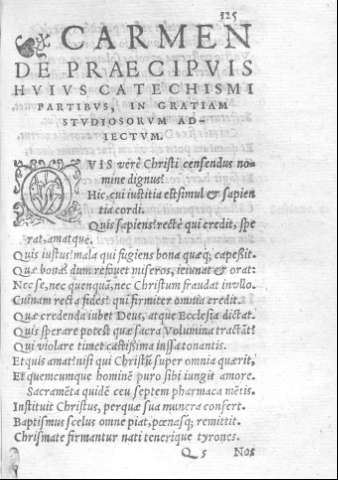 125
CARMEN
DE PRAECIPVIS
HVIVS CATECHISMI
PARTIBVS, IN GRATIAM
STVDIOSORVM AD-
IECTVM.
QVIS verè Christi censendus no-
mine dignus?
Hic, cui iustitia est simul & sapien
tia cordi.
Quis sapiens? rectè qui credit, spe
rat, amatque.
Quis iustus? mala qui fugiens bona quæq; capessit.
Quæ bona? dum refouet miseros, ieiunat & orat:
Nec se, nec quenquã, nec Christum fraudat in vllo.
Cuinam recta fides? qui firmiter omnia credit.
Quæ credenda iubet Deus, atque Ecclesia dictat.
Quis sperare potest? quæ sacra Volumina tractãt?
Qui violare timet castissima iussa tonantis.
Et quis amat? nisi qui Christũ super omnia quærit,
Et quemcumque hominẽ puro sibi iungit amore.
Sacramẽta quidẽ ceu septem pharmaca mẽtis.
Instituit Christus, perquæ sua munera confert.
Baptismus scelus omne piat, pœnasq; remittit.
Chrismate firmantur nati tenerique tyrones.
Q 5 Nos